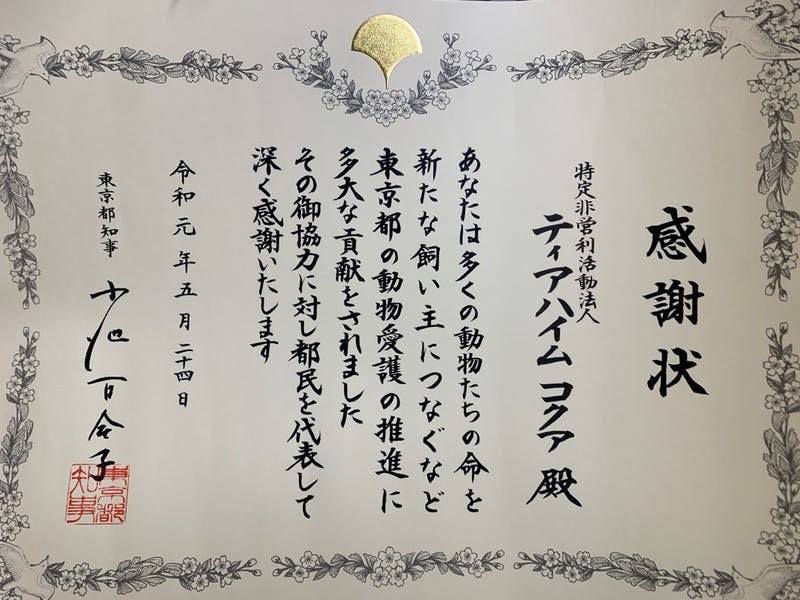 感謝状
特定非営利活動法人
ティアハイム コクア 殿
あなたは多くの動物たちの命を
新たな飼い主につなぐなど
東京都の動物愛護の推進に
多大な貢献をされました
その御協力に対し都民を代表して
深く感謝いたします
令和元年五月二十四日
東京都知事 小池百合子
東京都
知事